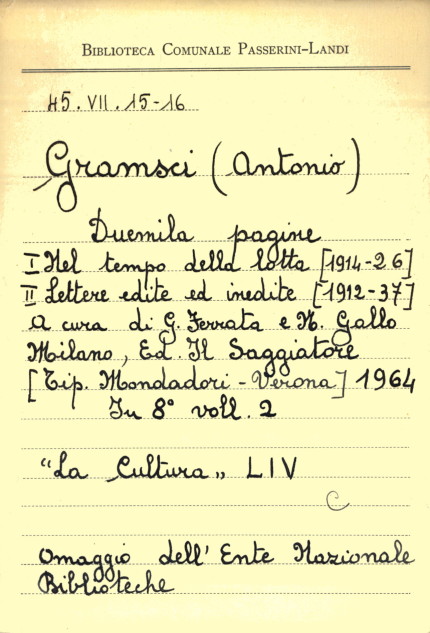 BIBLIOTECA COMUNALE PASSERINI-LANDI
45. VII. 15-16
Gramsci (Antonio)
Duemila pagine
I Nel tempo della lotta [1914-26]
II Lettere edite ed inedite [1912-37]
A cura di G. Ferrata e N. Gallo
Milano, Ed. Il Saggiatore
[Tip. Mondadori - Verona] 1964
In 8° voll. 2
"La Cultura„ LIV
C
Omaggio dell'Ente Nazionale
Biblioteche